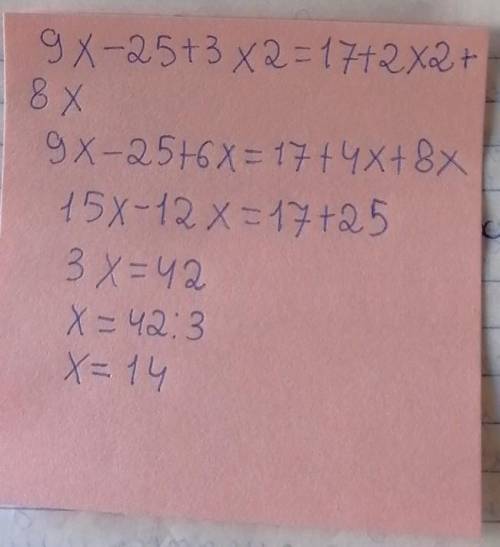 9x-25+3x2=17+2x2+
8x
9x-25+6x=17+4x+8x
15x-12x=17+25
3x=42
x=42:3
x=14